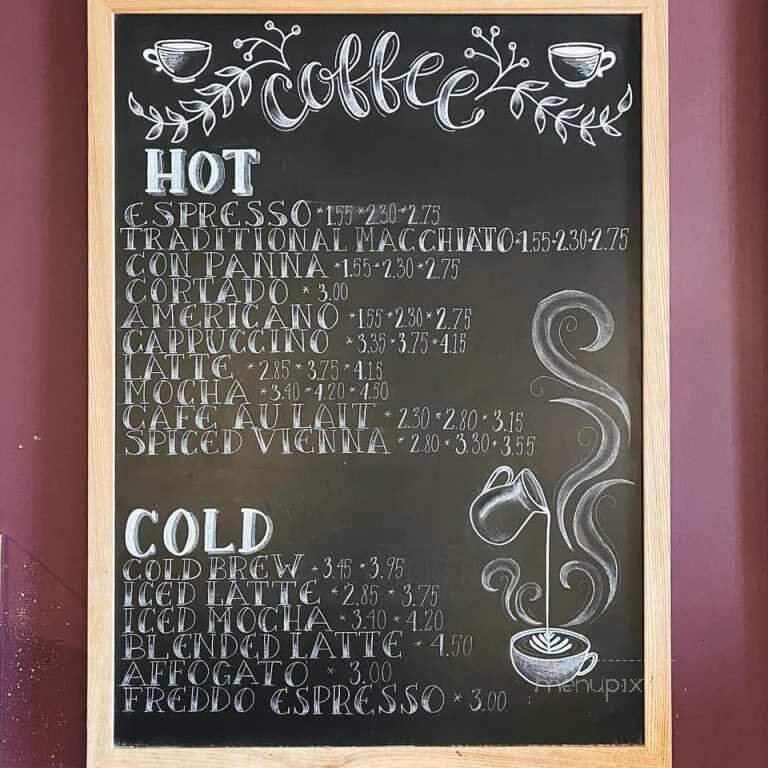 coffee
HOT
ESPRESSO *1.55*2.30*2.75
TRADITIONAL MACCHIATO*1.55*2.30*2.75
CON PANNA *1.55*2.30*2.75
CORTADO * 3.00
AMERICANO *1.55*2.30*2.75
CAPPUCCINO *3.35*3.75*4.15
LATTE *2.85*3.75*4.15
MOCHA *3.40*4.20*4.50
CAFE AU LAIT *2.30*2.80*3.15
SPICED VIENNA *2.80*3.30*3.55
COLD
COLD BREW *3.45*3.95
ICED LATTE *2.85*3.75
ICED MOCHA *3.40*4.20
BLENDED LATTE * 4.50
AFFOGATO * 3.00
FREDDO ESPRESSO * 3.00
menupix